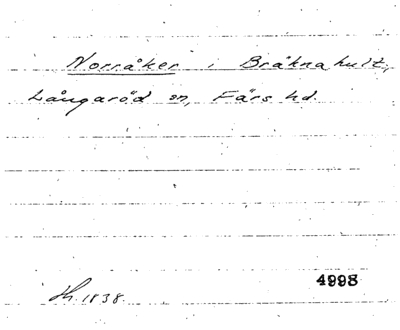 Norråker, Bråknahult,
Långaröd sn, Färs hd.
4998
Th. 1838.